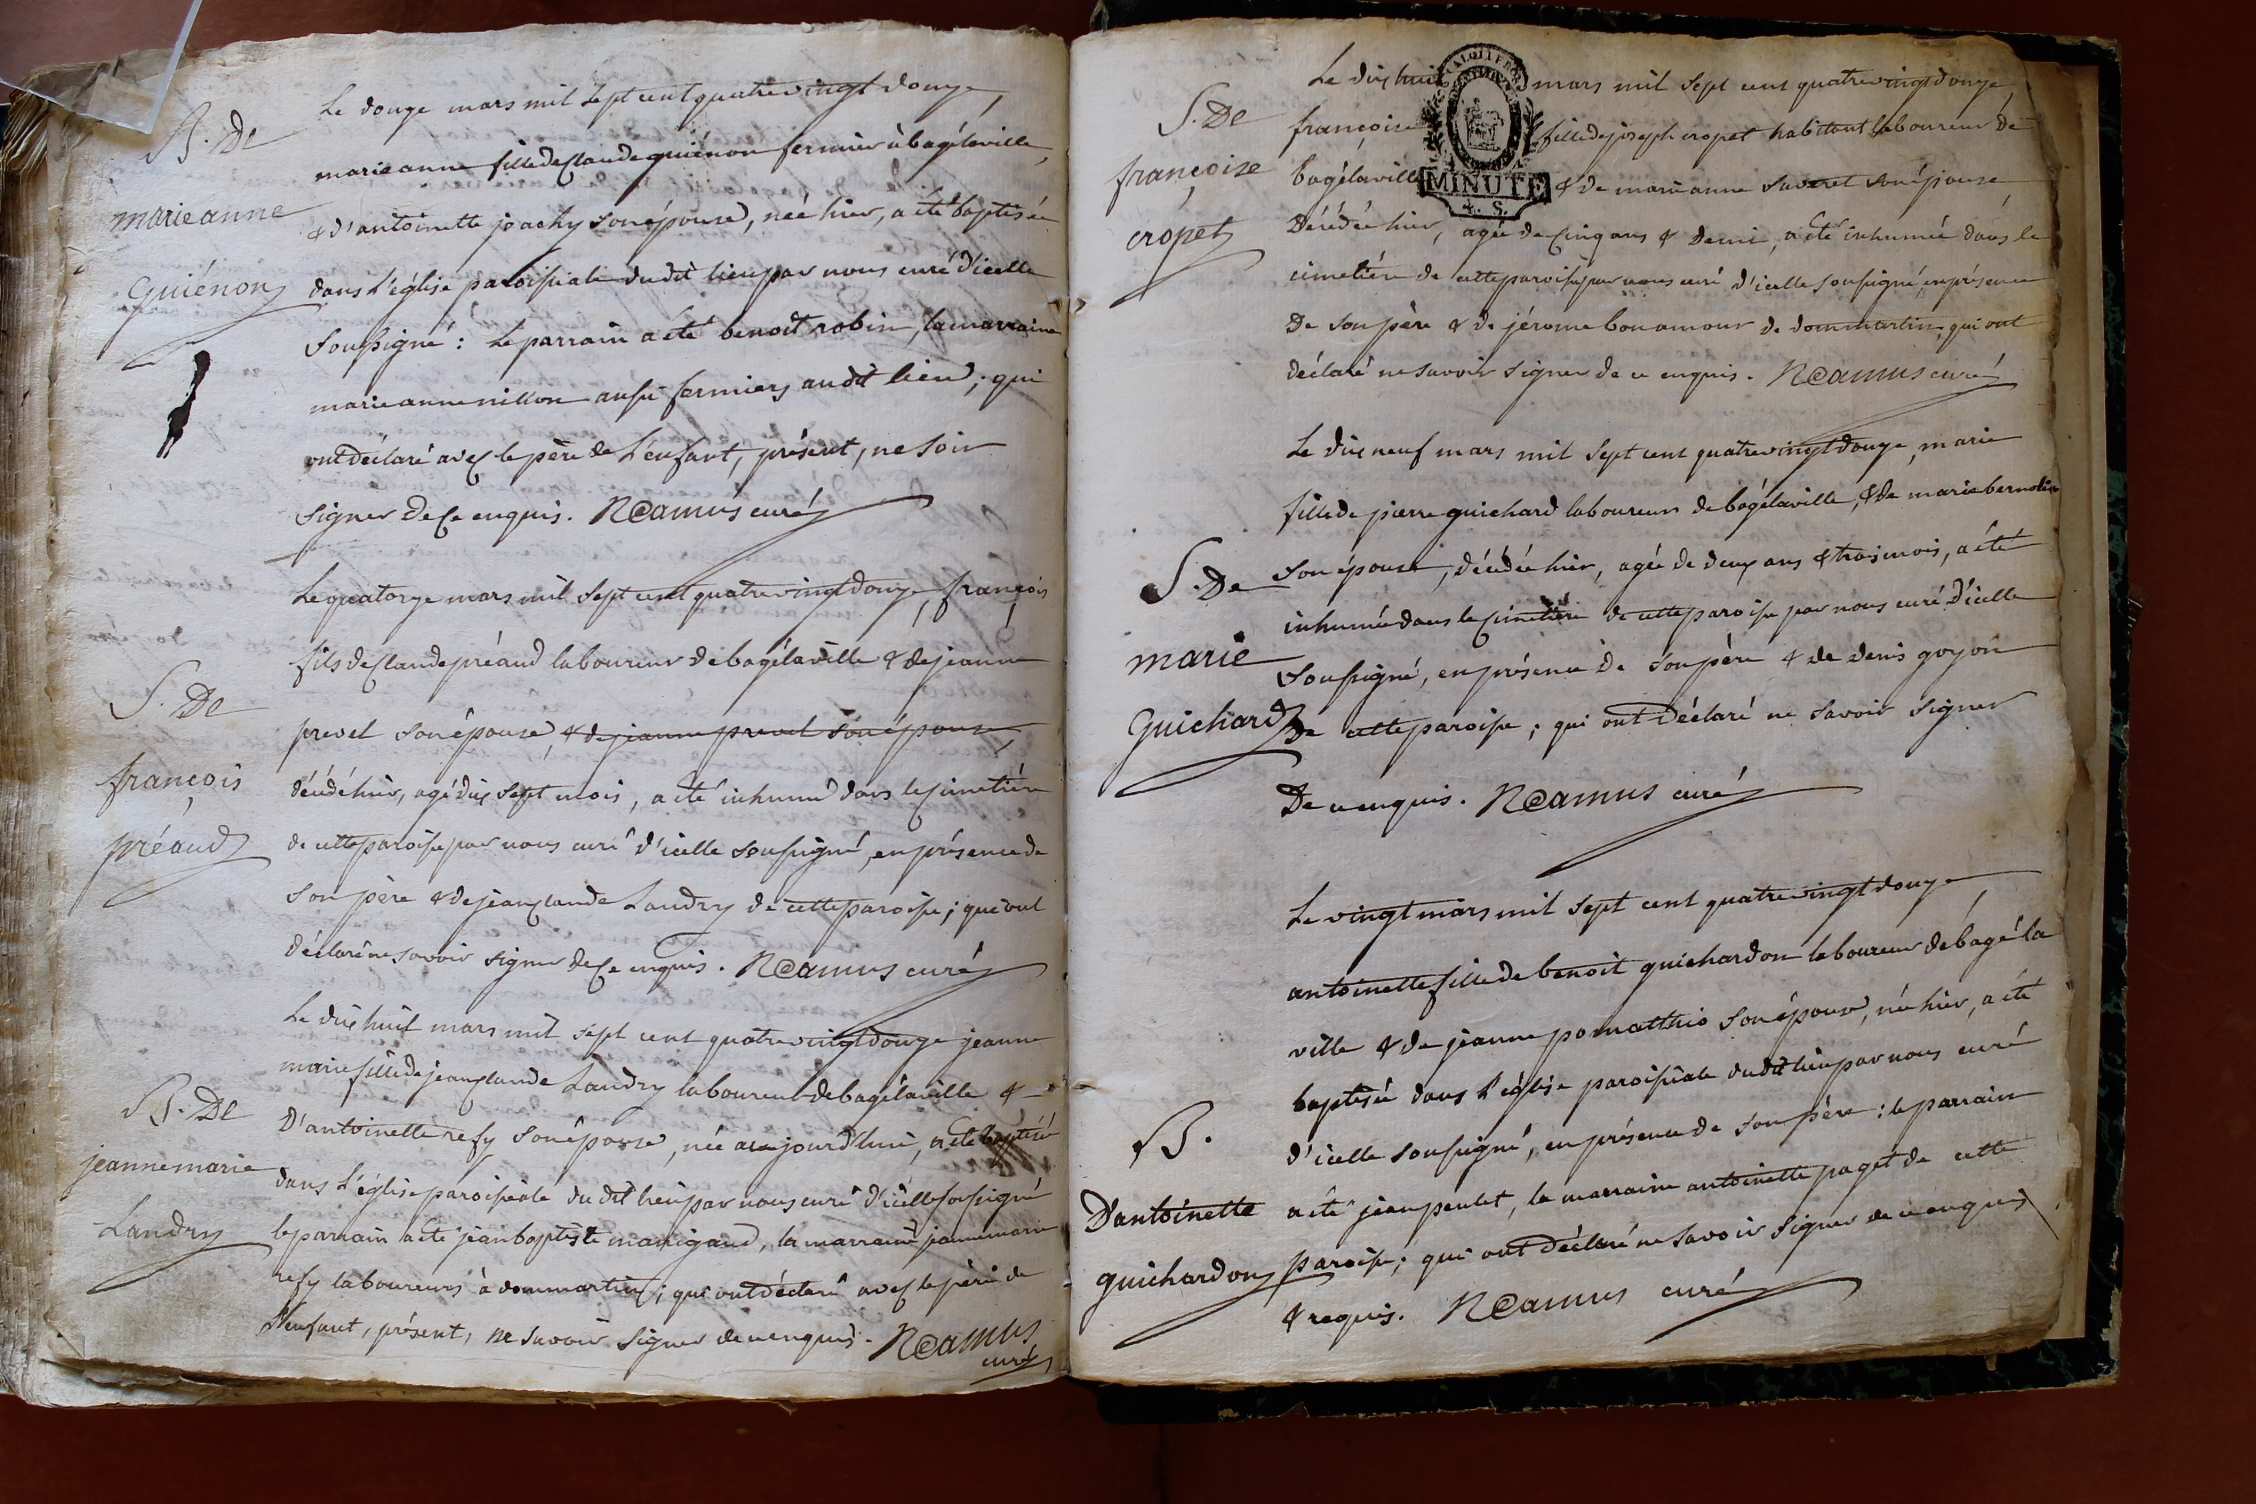 B. De
marieanne
guiénon
Le douze mars mil sept cent quatre vingt douze,
marie anne fille de claude guiénon fermier à bagélaville,
& d'antoinette joachy son épouse, née hier, a été baptisée
dans l'église paroissiale du dit lieu par nous curé d'icelle
soussigné : Le parrain a été benoit robin, la marraine
marie anne nillon aussi fermiers au dit lieu; qui
ont déclaré avec le père de l'enfant, présent, ne soir
signer de ce enquis. Camus curé
S. De
françois
préaud
Le quatorze mars mil sept cent quatre vingt douze, françois
fils de claude préaud laboureur de bagélaville & de jeanne
prevel son épouse, & de jeanne prevel son épouse,
décédé hier, agé dix sept mois, a été inhumé dans le cimetière
de cette paroisse par nous curé d'icelle soussigné, en présence de
son père & de jean claude Landry de cette paroisse; qui ont
déclaré ne savoir signer de ce enquis. Camus curé
B. De
jeannemarie
Landry
Le dix huit mars mil sept cent quatre vingt douze jeanne
marie fille de jean claude Landry laboureur de bagélaville &
D'antoinette refy son épouse, née aujourd'hui, a été baptisée
dans l'église paroissiale du dit lieu par nous curé d'icelle soussigné
le parrain a été jean baptiste manigaud, la marraine jeanne marie
refy laboureurs à dommartin; qui ont déclaré avec le père de
l'enfant, présent, ne savoir signer de ce enquis. Camus
curé
S. De
françoise
cropet
Le dix huit mars mil sept cent quatre vingt douze,
françoise fille de joseph cropet habitant laboureur de
bagélaville & de marie anne savaret son épouse
Décédée hier, agée de cinq ans & demi, a été inhumée dans le
cimetière de cette paroisse par nous curé d'icelle soussigné, en présence
De son père & de jérome bonamour de dommartin, qui ont
déclaré ne savoir signer de ce enquis. Camus curé
MINUTE
4. S.
S. De
marie
Guichard
Le dix neuf mars mil sept cent quatre vingt douze, marie
fille de pierre guichard laboureur de bagélaville, & de marie bernolin
son épouse, décédée hier, agée de deux ans & trois mois, a été
inhumée dans le cimetière de cette paroisse par nous curé D'icelle
soussigné, en présence de son père & de denis goyon
De cette paroisse; qui ont déclaré ne savoir signer
De ce enquis. Camus curé
B.
D'antoinette
guichardon
Le vingt mars mil sept cent quatre vingt douze,
antoinette fille de benoit guichardon laboureur de bagé la
ville & de jeanne pomatthio son épouse, née hier, a été
baptisée dans l'église paroissiale du dit lieu par nous curé
d'icelle soussigné, en présence de son père : le parrain
a été jean peulet, la marraine antoinette paget de cette
paroisse; qui ont déclaré ne savoir signer de ce enquis
& requis. Camus curé